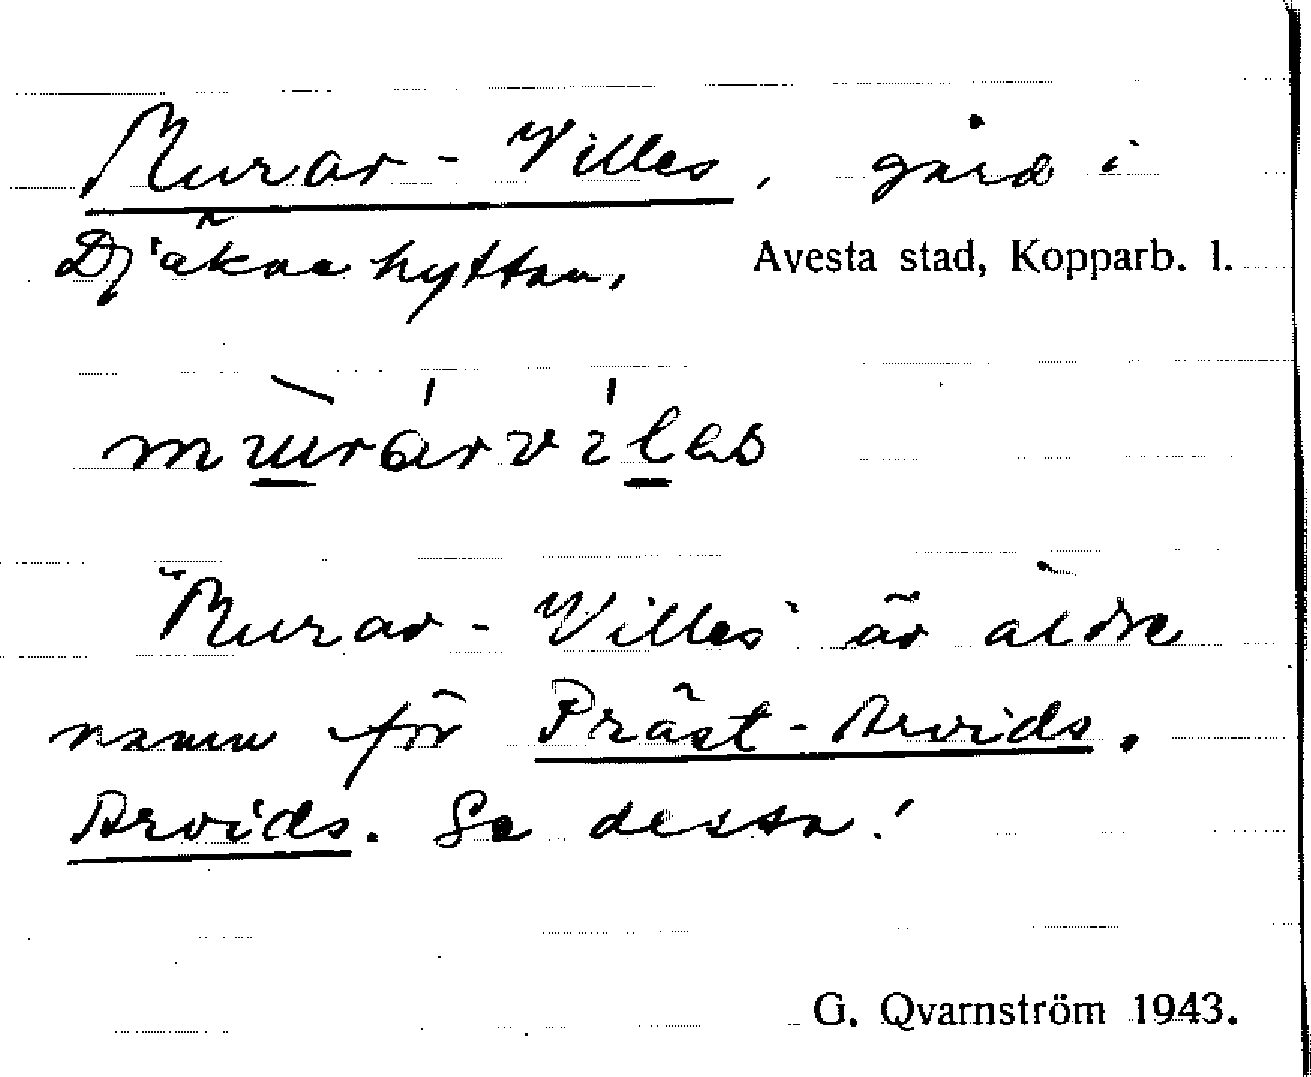 Murar-Villes, gård i
Djäknehyttan, Avesta stad, Kopparb. l.
"Murar-Villes" är äldre
namn för Präst-Arvids,
Arvids. Se dessa!
G. Qvarnström 1943.